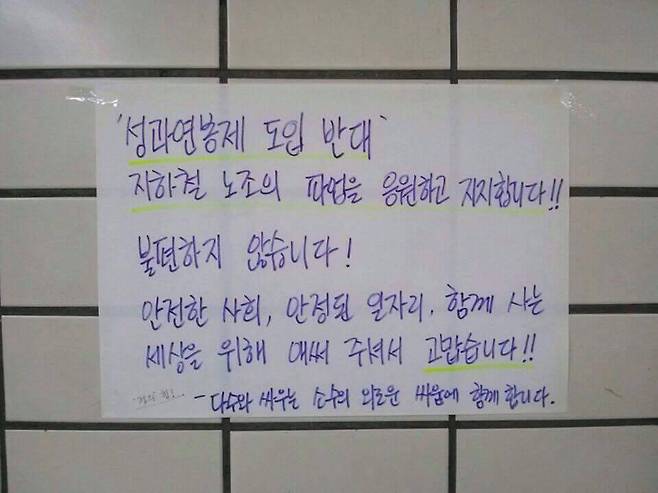 '성과연봉제 도입 반대'
지하철 노조의 파업을 응원하고 지지합니다!!
불편하지 않습니다!
안전한 사회, 안정된 일자리. 함께 사는
세상을 위해 애써 주셔서 고맙습니다!!
- 다수와 싸우는 소수의 외로운 싸움에 함께 합니다.